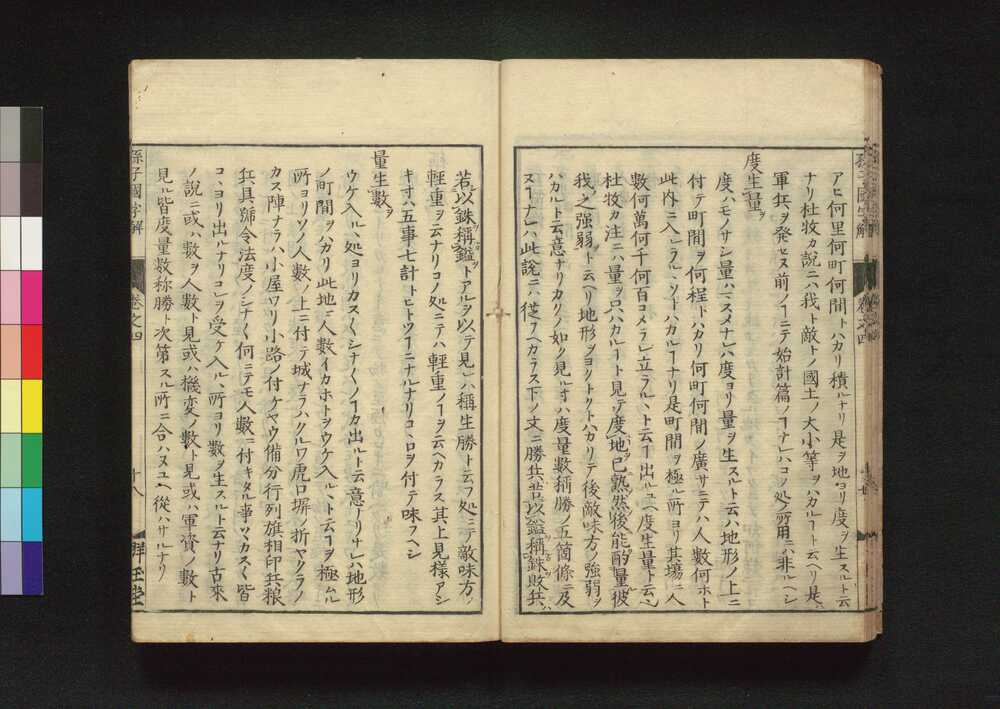 アヒ何里何町何間トハカリ積ルナリ是ヲ地ヨリ度ヲ生スルト云
ナリ杜牧カ説ニハ我ト敵トノ國土ノ大小等ヲハカルート云ヘリ是ハ
軍兵ヲ発セヌ前ノヿニテ始計篇ノヿナレハコノ処ノ所用ニハ非ルヘシ
度生量ヲ
度ハモノサシ量ハマスメナレハ度ヨリ量ヲ生スルト云ハ地形ノ上ニ
付テ町間ヲ何程トハカリ何町何間ノ廣サニテハ人数何ホト
此内ニ入ラルヽソトハカルヿナリ是町間ヲ極ル所ヨリ其場ニ人
数何萬何千何百コメラレ立ラルヽト云ヿ出ルユヘ度生量ト云ヘリ
杜牧カ注ニハ量ヲ只ハカルート見テ度地已熟然後能酌量彼
我之強弱ト云ヘリ地形ヲヨクトクトハカリテ後敵味方ノ強弱ヲ
ハカルト云意ナリカリノ如ク見ルオハ度量数稱勝ノ五箇條ニ及
ヌヿナレハ此説ニハ從フヘカラス下ノ文ニ勝兵若以鎰稱銖敗兵ハ
若以銖稱鎰トアルヲ以テ見レハ稱生勝ト云フ処ニテ敵味方ノ
輕重ヲ云ナリコノ処ニテハ輕重ノヿヲ云ヘカラス其上見様アシ
キオハ五事七計トヒトツヿニナルナリコヽロヲ付テ味フヘシ
量生數ヲ
ウケ入ルヽ処ヨリカスカスシナシナノヿカ出ルト云意ナリシナレハ地形
ノ町間ヲハカリ此地ニ人数イカホトヲウケ入ルヽト云ヿヲ極ムル
所ヨリソノ人数ノ上ニ付テ城ナラハクルワ虎口塀ノ折ヤクラノ
カス陣ナラハ小屋ワリ小路ノ付ケヤウ備分行列旗相印兵粮
兵具號令法度ノシナシナ何ニテモ人数ニ付キタル事ツカスカスハ皆
コヽヨリ出ルナリコレヲ受ケ入ルヽ所ヨリ數ヲ生スルト云ナリ古來
ノ説ニ或ハ數ヲ人數ト見或ハ機変ノ數ト見或ハ軍資ノ數ト
見ル皆度量數称勝ト次第スル所ニ合ハヌユヘ從ハサルナリ
孫子國字解
卷之四
十八
群玉堂